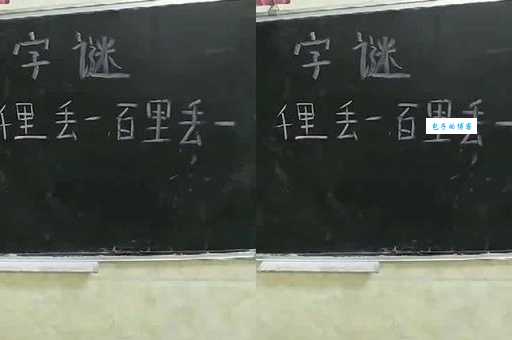 字谜
千里丢一百里丢一
字谜
千里丢一百里丢一
包子的博客